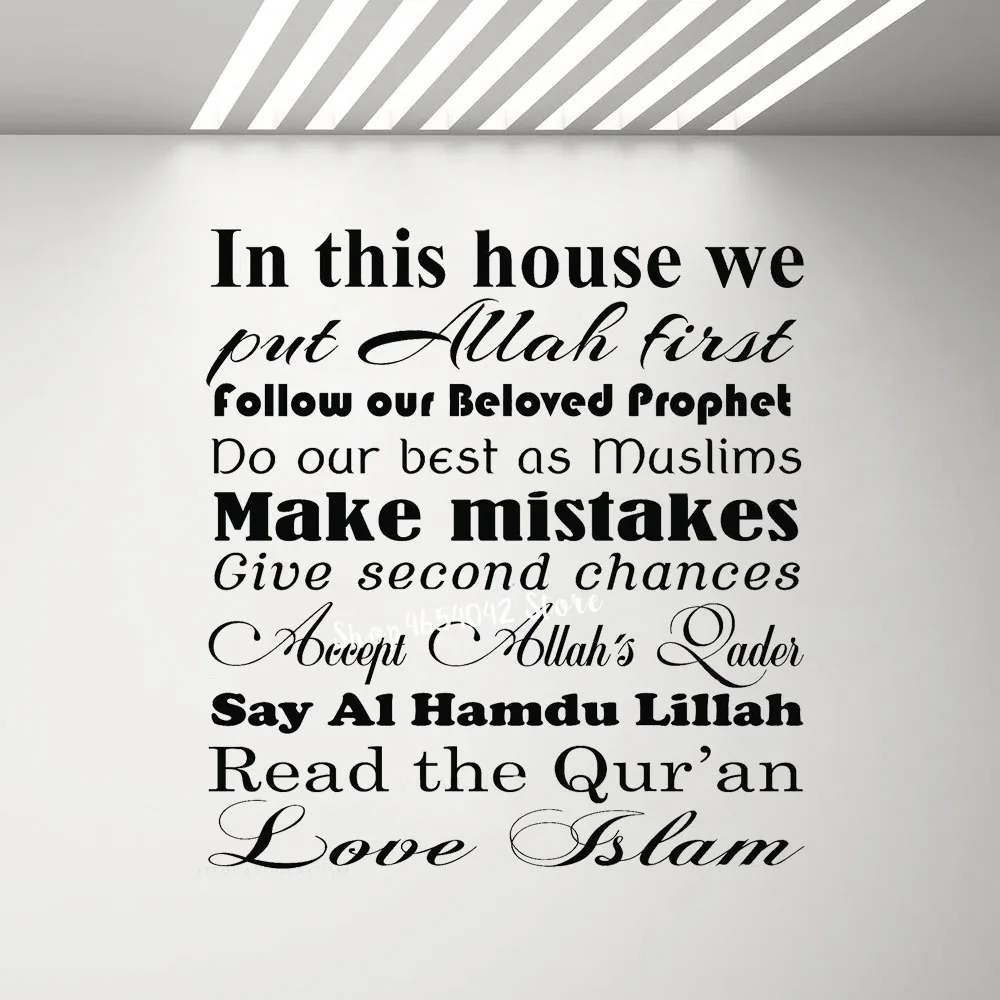 In this house we
put Allah first
Follow our Beloved Prophet
Do our best as Muslims
Make mistakes
Give second chances
Accept Allah's Qader
Shop4654042 Store
Say Al Hamdu Lillah
Read the Qur'an
Love Islam